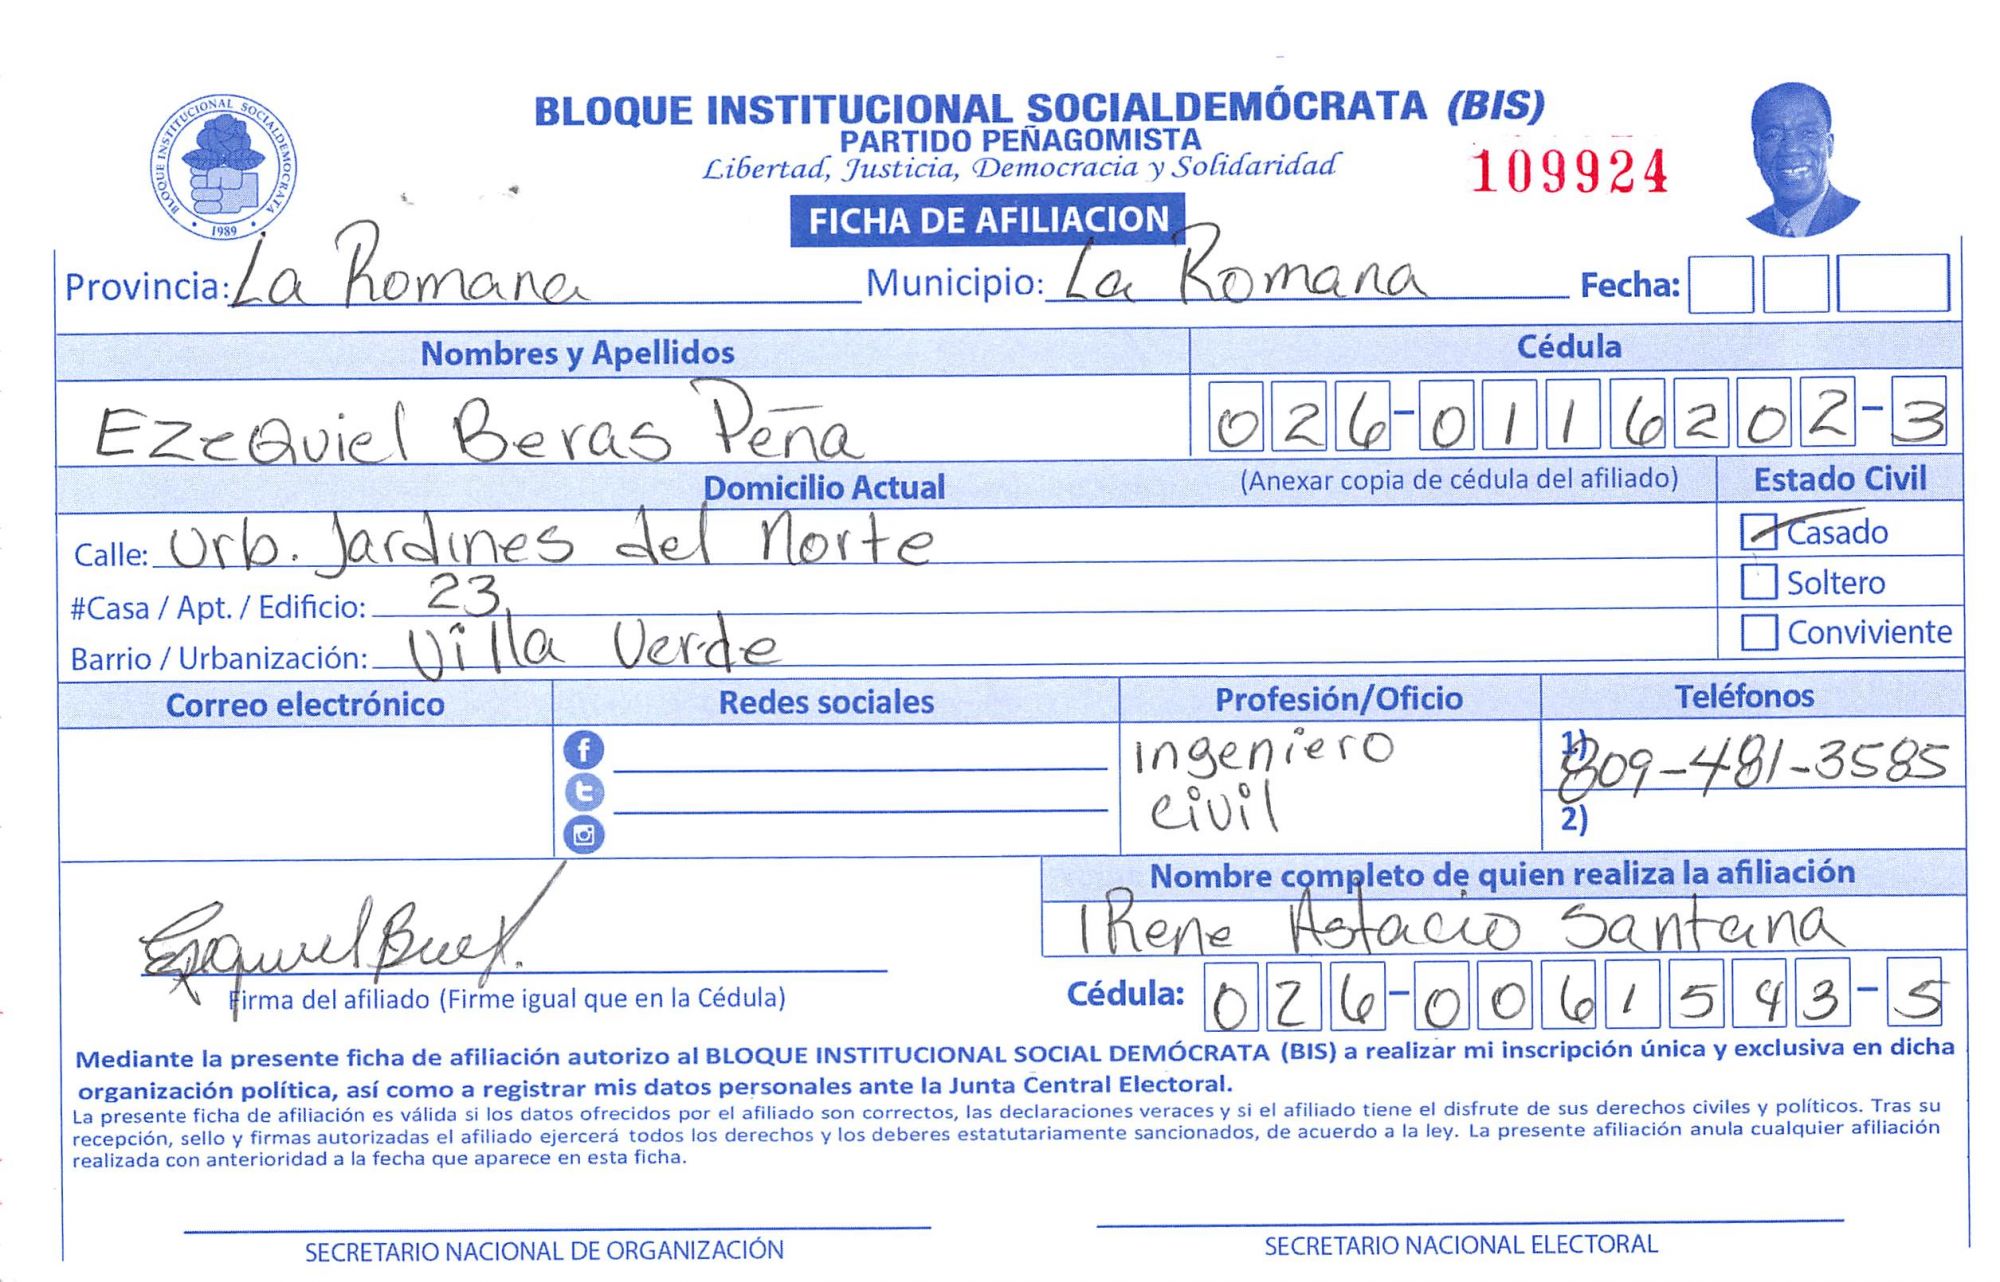 BLOQUE INSTITUCIONAL SOCIALDEMOCRATA
1989
BLOQUE INSTITUCIONAL SOCIALDEMÓCRATA (BIS)
PARTIDO PEÑAGOMISTA
Libertad, Justicia, Democracia y Solidaridad
109924
FICHA DE AFILIACION
Provincia: La Romana Municipio: La Romana Fecha:
Nombres y Apellidos Cédula
Ezequiel Beras Peña 026-0116202-3
Domicilio Actual (Anexar copia de cédula del afiliado) Estado Civil
Calle: Urb. Jardines del Norte Casado
#Casa / Apt. / Edificio: 23 Soltero
Barrio / Urbanización: Villa Verde Conviviente
Correo electrónico Redes sociales Profesión/Oficio Teléfonos
Ingeniero 1) 809-481-3585
civil 2)
Nombre completo de quien realiza la afiliación
IRene Astacio Santana
Firma del afiliado (Firme igual que en la Cédula) Cédula: 026-0061543-5
Mediante la presente ficha de afiliación autorizo al BLOQUE INSTITUCIONAL SOCIAL DEMÓCRATA (BIS) a realizar mi inscripción única y exclusiva en dicha
organización política, así como a registrar mis datos personales ante la Junta Central Electoral.
La presente ficha de afiliación es válida si los datos ofrecidos por el afiliado son correctos, las declaraciones veraces y si el afiliado tiene el disfrute de sus derechos civiles y políticos. Tras su
recepción, sello y firmas autorizadas el afiliado ejercerá todos los derechos y los deberes estatutariamente sancionados, de acuerdo a la ley. La presente afiliación anula cualquier afiliación
realizada con anterioridad a la fecha que aparece en esta ficha.
SECRETARIO NACIONAL DE ORGANIZACIÓN SECRETARIO NACIONAL ELECTORAL